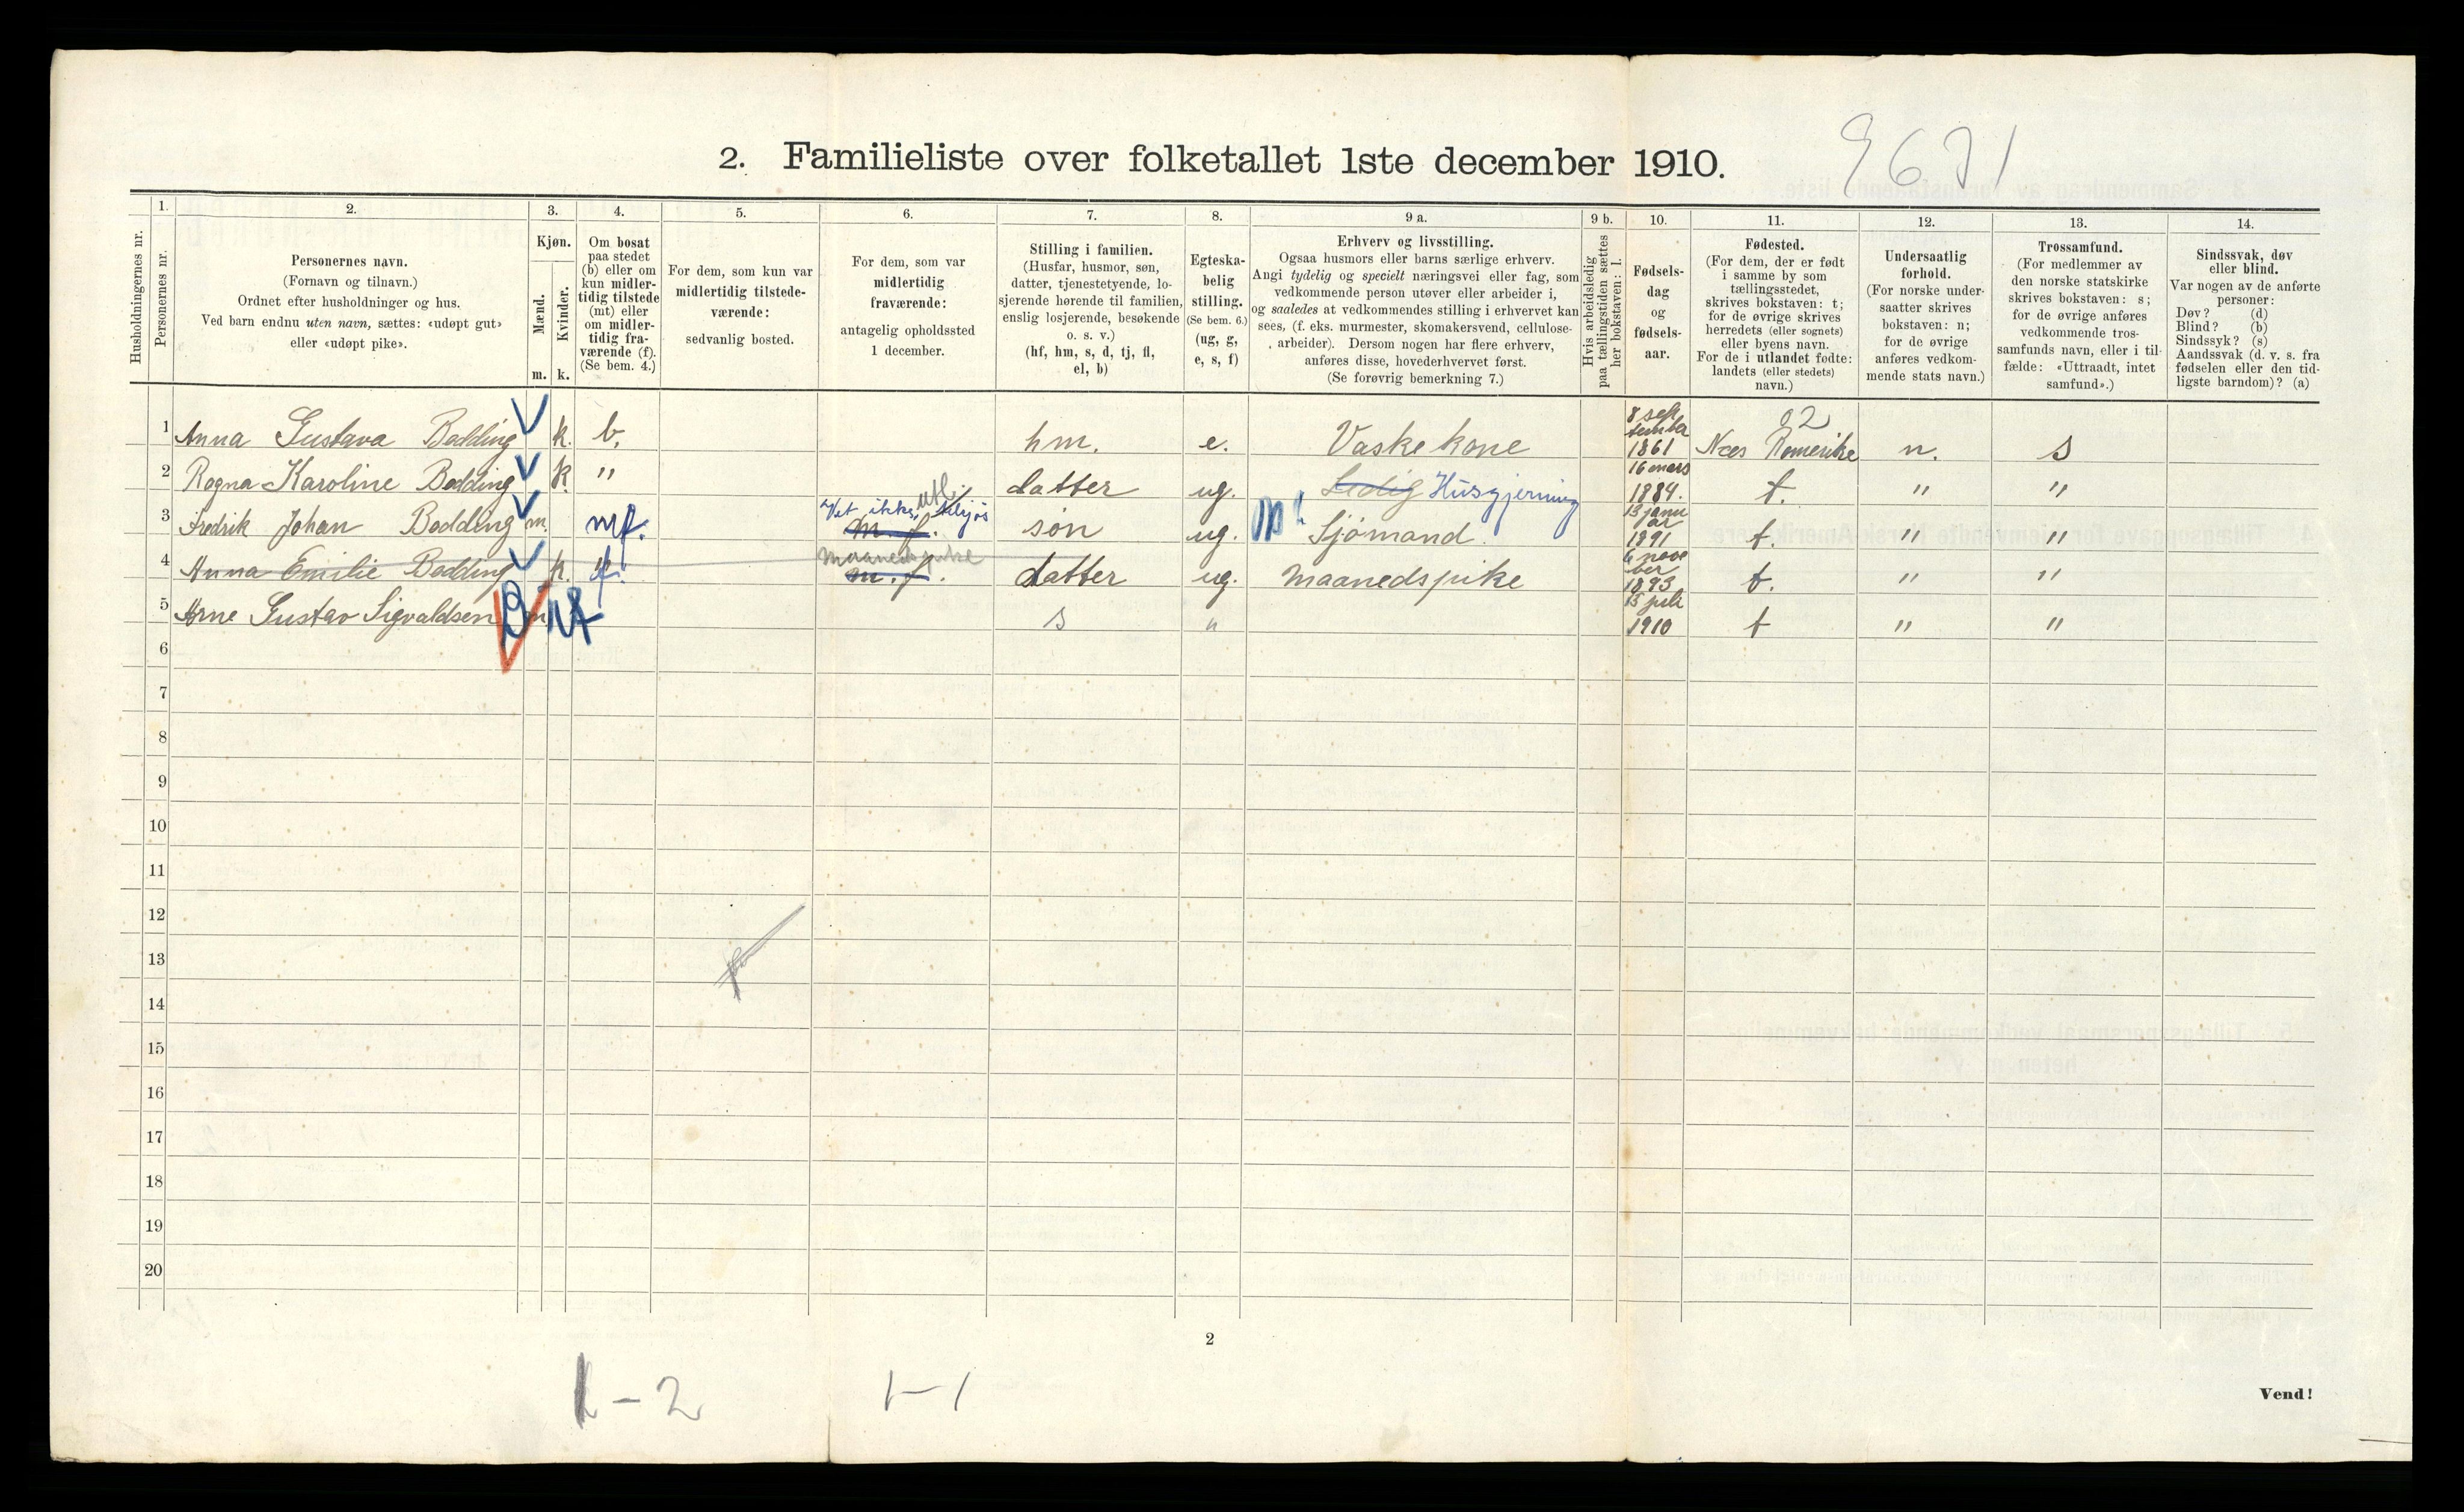 2. Familieliste over folketallet 1ste december 1910.
Husholdningernes nr.
1.
Personernes nr.
2.
Personernes navn.
(Fornavn og tilnavn.)
Ordnet efter husholdninger og hus.
Ved barn endnu uten navn, sættes: «udøpt gut»
eller «udøpt pike».
3.
Kjøn.
Mænd.
Kvinder.
m.
k.
4.
Om bosat
paa stedet
(b) eller om
kun midler-
tidig tilstede
(mt) eller
om midler-
tidig fra-
værende (f).
(Se bem. 4.)
5.
For dem, som kun var
midlertidig tilstede-
værende:
sedvanlig bosted.
6.
For dem, som var
midlertidig
fraværende:
antagelig opholdssted
1 december.
7.
Stilling i familien.
(Husfar, husmor, søn,
datter, tjenestetyende, lo-
sjerende hørende til familien,
enslig losjerende, besøkende
o. s. v.)
(hf, hm, s, d, tj, fl,
el, b)
8.
Egteska-
belig
stilling.
(Se bem. 6.)
(ug, g,
e, s, f)
9 a.
Erhverv og livsstilling.
Ogsaa husmors eller barns særlige erhverv.
Angi tydelig og specielt næringsvei eller fag, som
vedkommende person utøver eller arbeider i,
og saaledes at vedkommendes stilling i erhvervet kan
sees, (f. eks. murmester, skomakersvend, cellulose-
arbeider). Dersom nogen har flere erhverv,
anføres disse, hovederhvervet først.
(Se forøvrig bemerkning 7.)
9 b.
Hvis arbeidsledig
paa tællingstiden sættes
her bokstaven: l.
10.
Fødsels-
dag
og
fødsels-
aar.
11.
Fødested.
(For dem, der er født
i samme by som
tællingsstedet,
skrives bokstaven: t;
for de øvrige skrives
herredets (eller sognets)
eller byens navn.
For de i utlandet fødte:
landets (eller stedets)
navn.)
12.
Undersaatlig
forhold.
(For norske under-
saatter skrives
bokstaven: n;
for de øvrige
anføres vedkom-
mende stats navn.)
13.
Trossamfund.
(For medlemmer av
den norske statskirke
skrives bokstaven: s;
for de øvrige anføres
vedkommende tros-
samfunds navn, eller i til-
fælde: «Uttraadt, intet
samfund».)
14.
Sindssvak, døv
eller blind.
Var nogen av de anførte
personer:
Døv? (d)
Blind? (b)
Sindssyk? (s)
Aandssvak (d. v. s. fra
fødselen eller den tid-
ligste barndom)? (a)
1 Anna Gustava Bodding k. b. hm. e. Vaskekone 8 september 1861 Næs Romerike n. s
02
2 Ragna Karoline Bodding k. " datter ug. Ledig Husgjerning 16 mars 1884. t. " "
3 Fredrik Johan Bodding m. mf. Vet ikke, tilsjøs utl. m. f. søn ug. Sjømand. 13 januar 1891 t. " "
4 Anna Emilie Bodding k. f. Maanedspike m. f. datter ug. Maanedspike 6 november 1893 t. " "
5 Arne Gustav Sigvaldsen m s " 15 juli 1910 t " "
6
7
8
9
10
11
12
13
14
15
16
17
18
19
20
2
1-2
1-1
Vend!